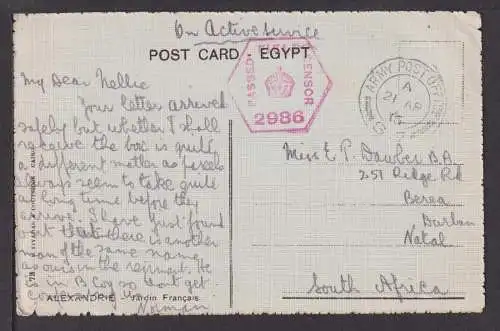 On Active Service
POST CARD EGYPT
PASSED CENSOR
2986
ARMY POST OFFICE
A
21 AP
My Dear Nellie
Your letter arrived
safely but whether I shall
receive the box is quite
a different matter as parcels
always seem to take quite
a long time before they
arrive. I have just found
out that there is another
man of the same name
as ours in the regiment. He
is in B Coy so don't get
Norman
Miss E P. Dawber B.A.
251 Ridge Rd
Berea
Durban
Natal
South Africa
ALEXANDRIE - Jardin Français